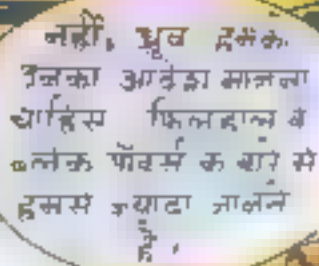 नहीं, ध्रुव हमको
उनका आदेश मानना
चाहिए फिलहाल वे
ब्लैक पॉवर्स के बारे में
हमसे ज्यादा जानते
हैं,